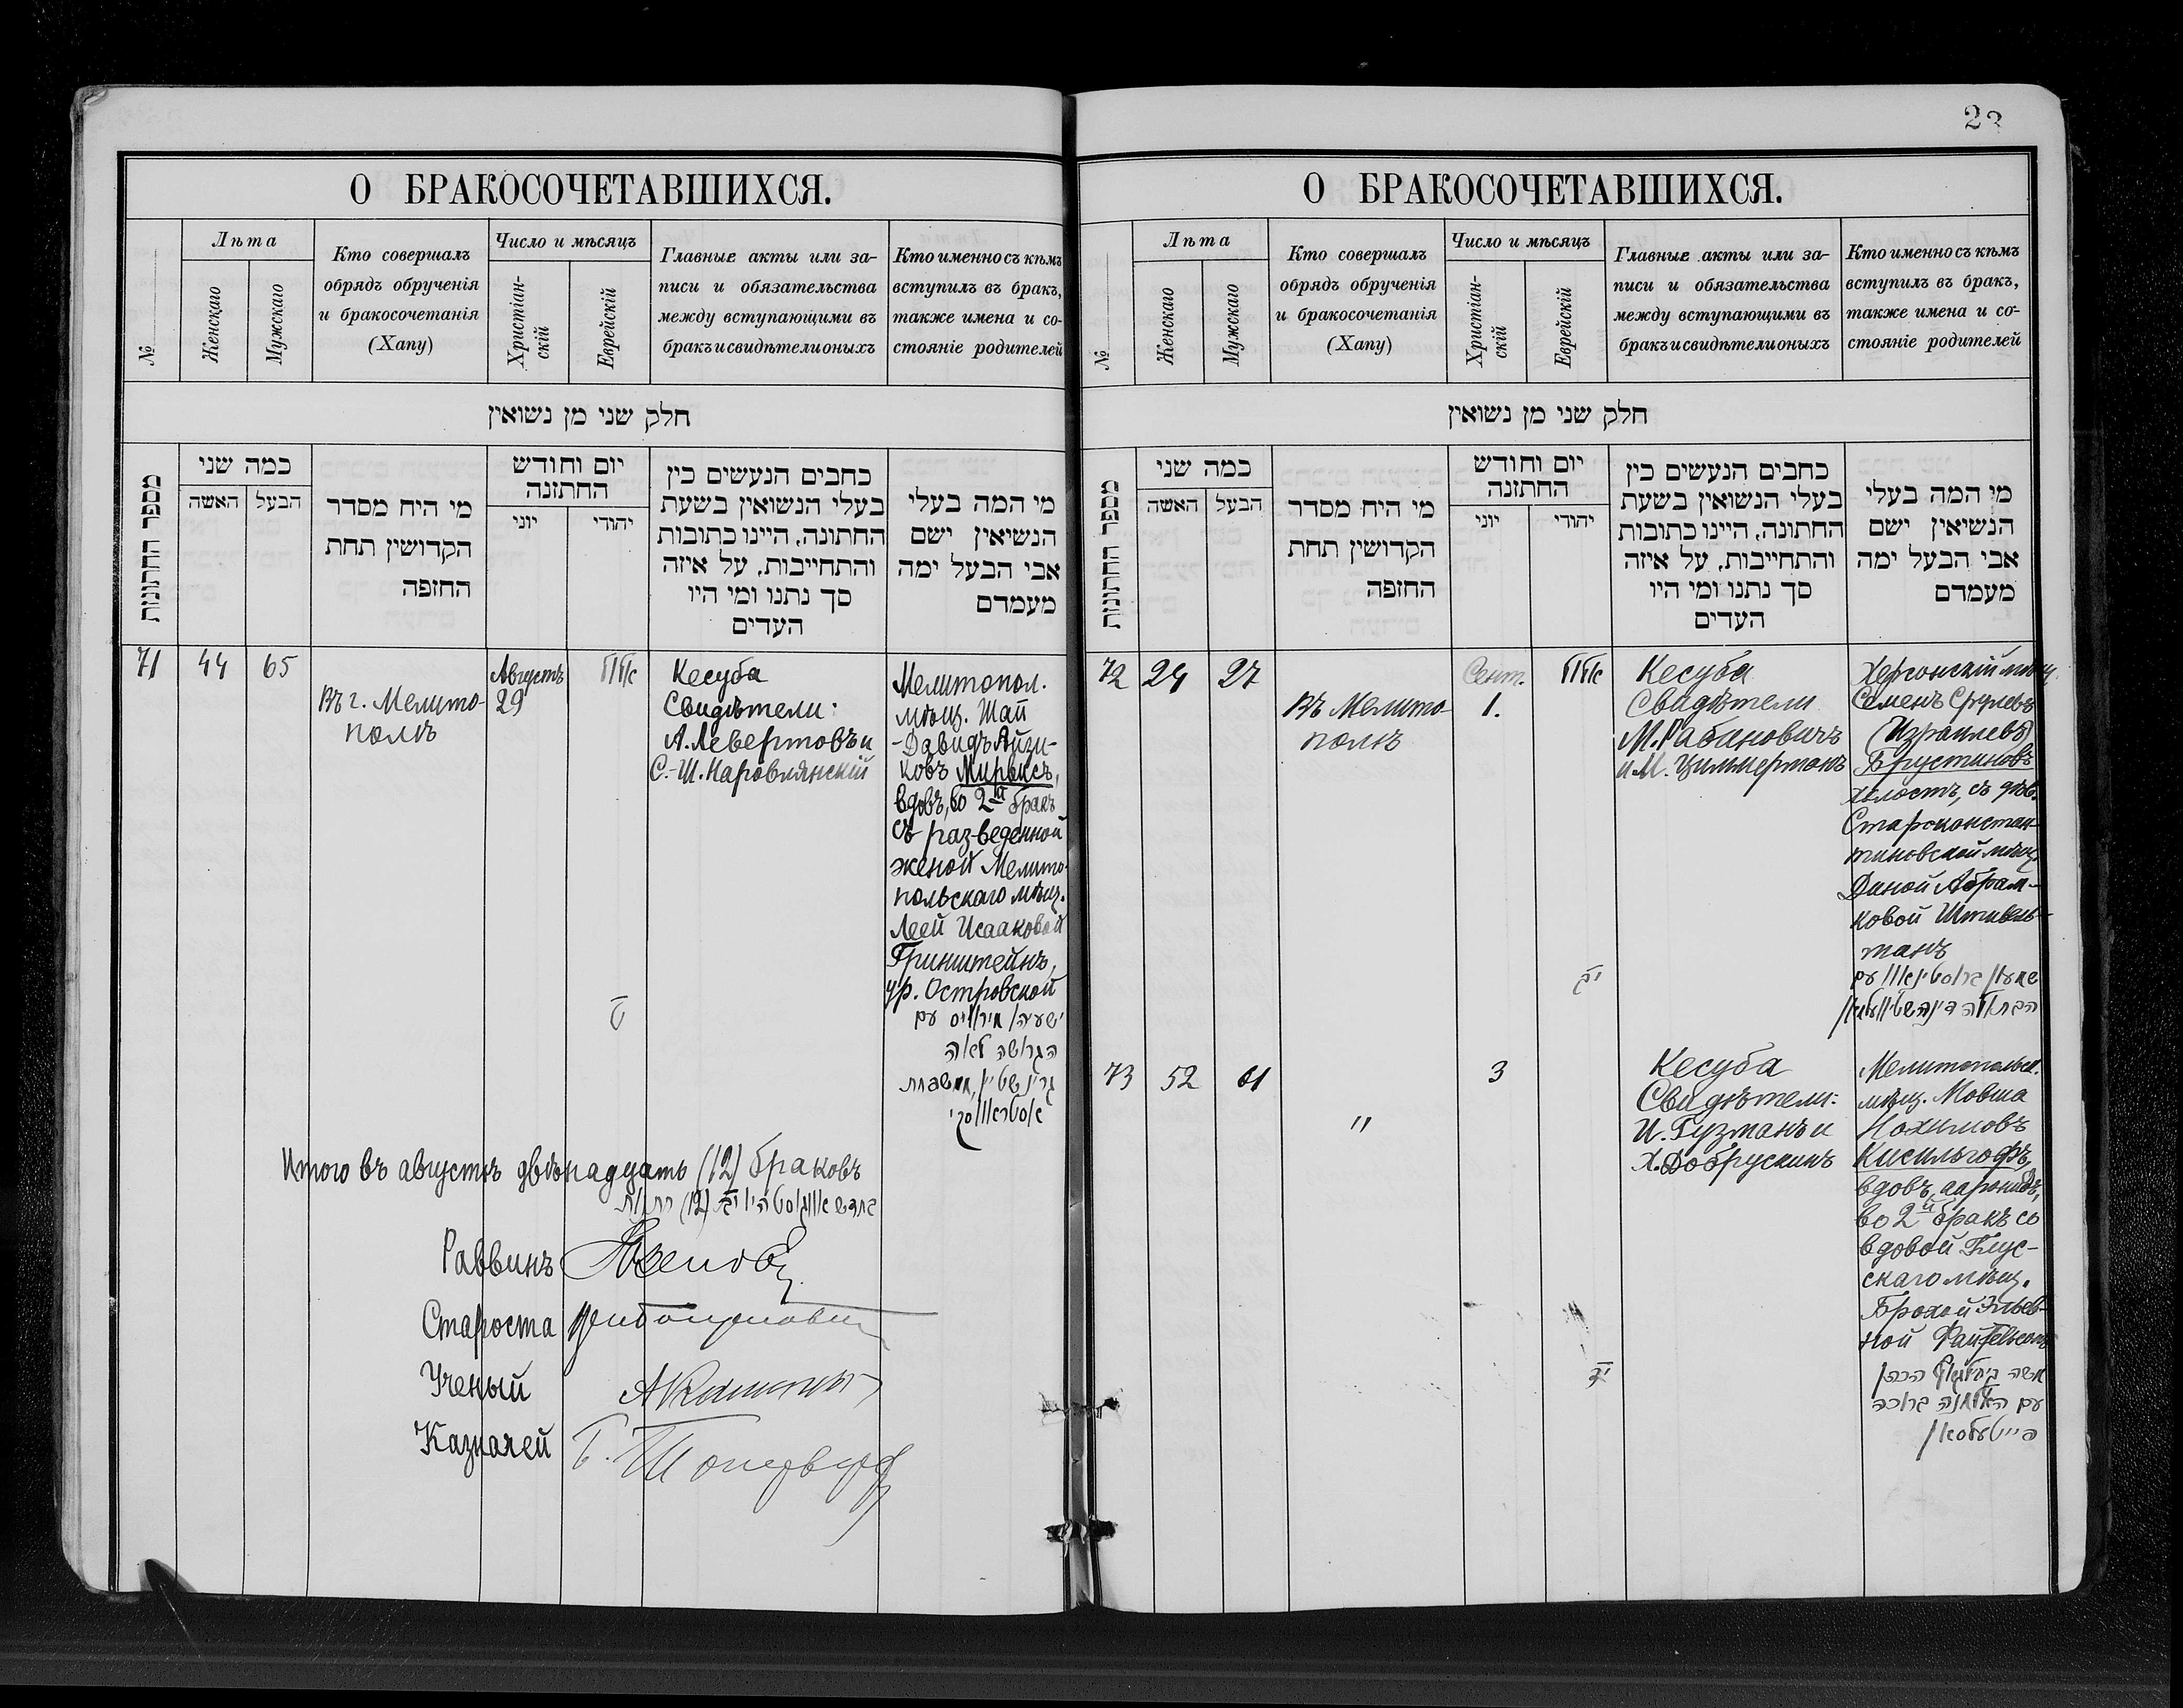 О БРАКОСОЧЕТАВШИХСЯ.
№
Лѣта
Женскаго
Мужскаго
Кто совершалъ
обрядъ обрученія
и бракосочетанія
(Хапу)
Число и мѣсяцъ
Христіан-
скій
Еврейскій
Главные акты или за-
писи и обязательства
между вступающими въ
бракъ и свидѣтели оныхъ
Кто именно съ кѣмъ
вступилъ въ бракъ,
также имена и со-
стояніе родителей
חלק שני מן נשואין
מספר החתונות
כמה שני
האשה
הבעל
מי היח מסדר
הקדושין תחת
החזפה
יום וחודש
החתזנה
יוני
יהודי
כחבים הנעשים כין
בעלי הנשואין בשעת
החתונה, היינו כתובות
והתחייבות, על איזה
סך נתנו ומי היו
העדים
מי המה בעלי
הנשיאין ישם
אבי הבעל ימה
מעמדם
71
44
65
Въ г. Мелито-
полѣ
Августъ
29
Кесуба
Свидѣтели:
А. Левертовъ и
С.-Ш. Наровлянскій
Мелитопол.
мѣщ. Шай
-Давидъ Айзи-
ковъ Мирвисъ,
вдовъ, во 2й бракъ
съ разведенной
женой Мелито-
польскаго мѣщ.
Леей Исааковой
Гринштейнъ,
ур. Островской
ישעיה
עם
הגרושה לאה
גרינשטיין
Итого въ августѣ двѣнадцать (12) браковъ
(12)
Раввинъ
Староста
Ученый
Казначей
23
О БРАКОСОЧЕТАВШИХСЯ.
№
Лѣта
Женскаго
Мужскаго
Кто совершалъ
обрядъ обрученія
и бракосочетанія
(Хапу)
Число и мѣсяцъ
Христіан-
скій
Еврейскій
Главные акты или за-
писи и обязательства
между вступающими въ
бракъ и свидѣтели оныхъ
Кто именно съ кѣмъ
вступилъ въ бракъ,
также имена и со-
стояніе родителей
חלק שני מן נשואין
מספר החתונות
כמה שני
האשה
הבעל
מי היח מסדר
הקדושין תחת
החזפה
יום וחודש
החתזנה
יוני
יהודי
כחבים הנעשים כין
בעלי הנשואין בשעת
החתונה, היינו כתובות
והתחייבות, על איזה
סך נתנו ומי היו
העדים
מי המה בעלי
הנשיאין ישם
אבי הבעל ימה
מעמדם
72
24
27
Въ Мелито-
полѣ
Сент.
1.
Кесуба
Свидѣтели
М. Рабиновичъ
и М. Циммерманъ
Херсонскій мѣщ.
Семенъ Срулевъ
(Израилевъ)
Брустиновъ
холостъ, съ дѣв.
Староконстан-
тиновской мѣщ.
Диной Абрам-
ковой Штивель-
манъ
שמעון
עם
הבתולה דינה
73
52
61
"
3
Кесуба
Свидѣтели:
И. Гузманъ и
Х. Добрускинъ
Мелитопольск.
мѣщ. Мовша
Нохимовъ
Кисильгофъ,
вдовъ, ааронидъ,
во 2й бракъ со
вдовой Глус-
скаго мѣщ.
Брохой Эльев-
ной
משה
הכהן
עם האלמנה ברכה